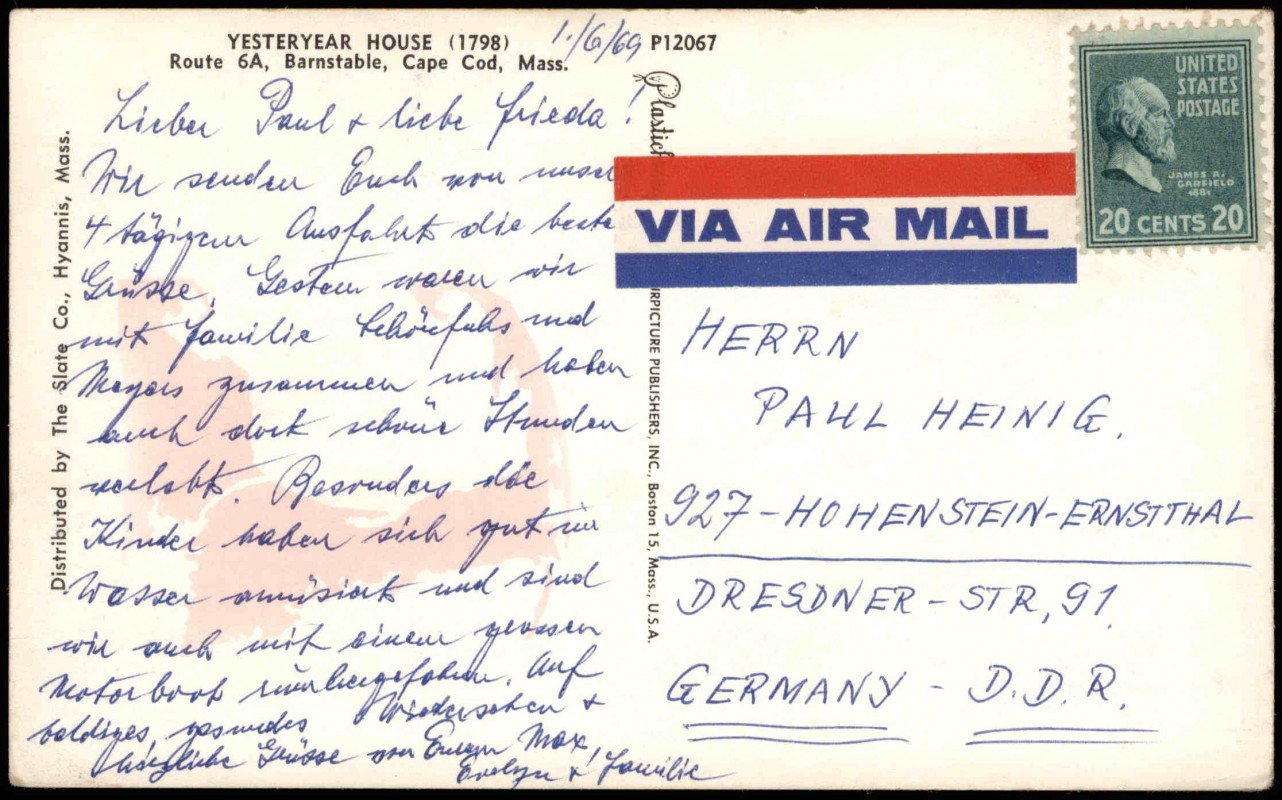 YESTERYEAR HOUSE (1798)
Route 6A, Barnstable, Cape Cod, Mass.
1./6/69
P12067
Distributed by The Slate Co., Hyannis, Mass.
Lieber Paul & liebe Frieda!
Wir senden Euch von unser
4 tägigen Ausfahrt die beste
Grüsse. Gestern waren wir
mit Familie Schönfuhs und
Meyers zusammen und haben
auch dort schöne Stunden
verlebt. Besonders die
Kinder haben sich gut im
Wasser amüsiert und sind
wir auch mit einem grossen
Motorboot rumhergefahren. Auf
baldiges gesundes Wiedersehen &
herzliche Grüsse von Euren Max,
Evelyn & Familie
Plastich
URPICTURE PUBLISHERS, INC., Boston 15, Mass., U.S.A.
VIA AIR MAIL
UNITED
STATES
POSTAGE
JAMES A.
GARFIELD
1881
20 CENTS 20
HERRN
PAUL HEINIG.
927-HOHENSTEIN-ERNSTTHAL
DRESDNER-STR, 91.
GERMANY - D.D.R.